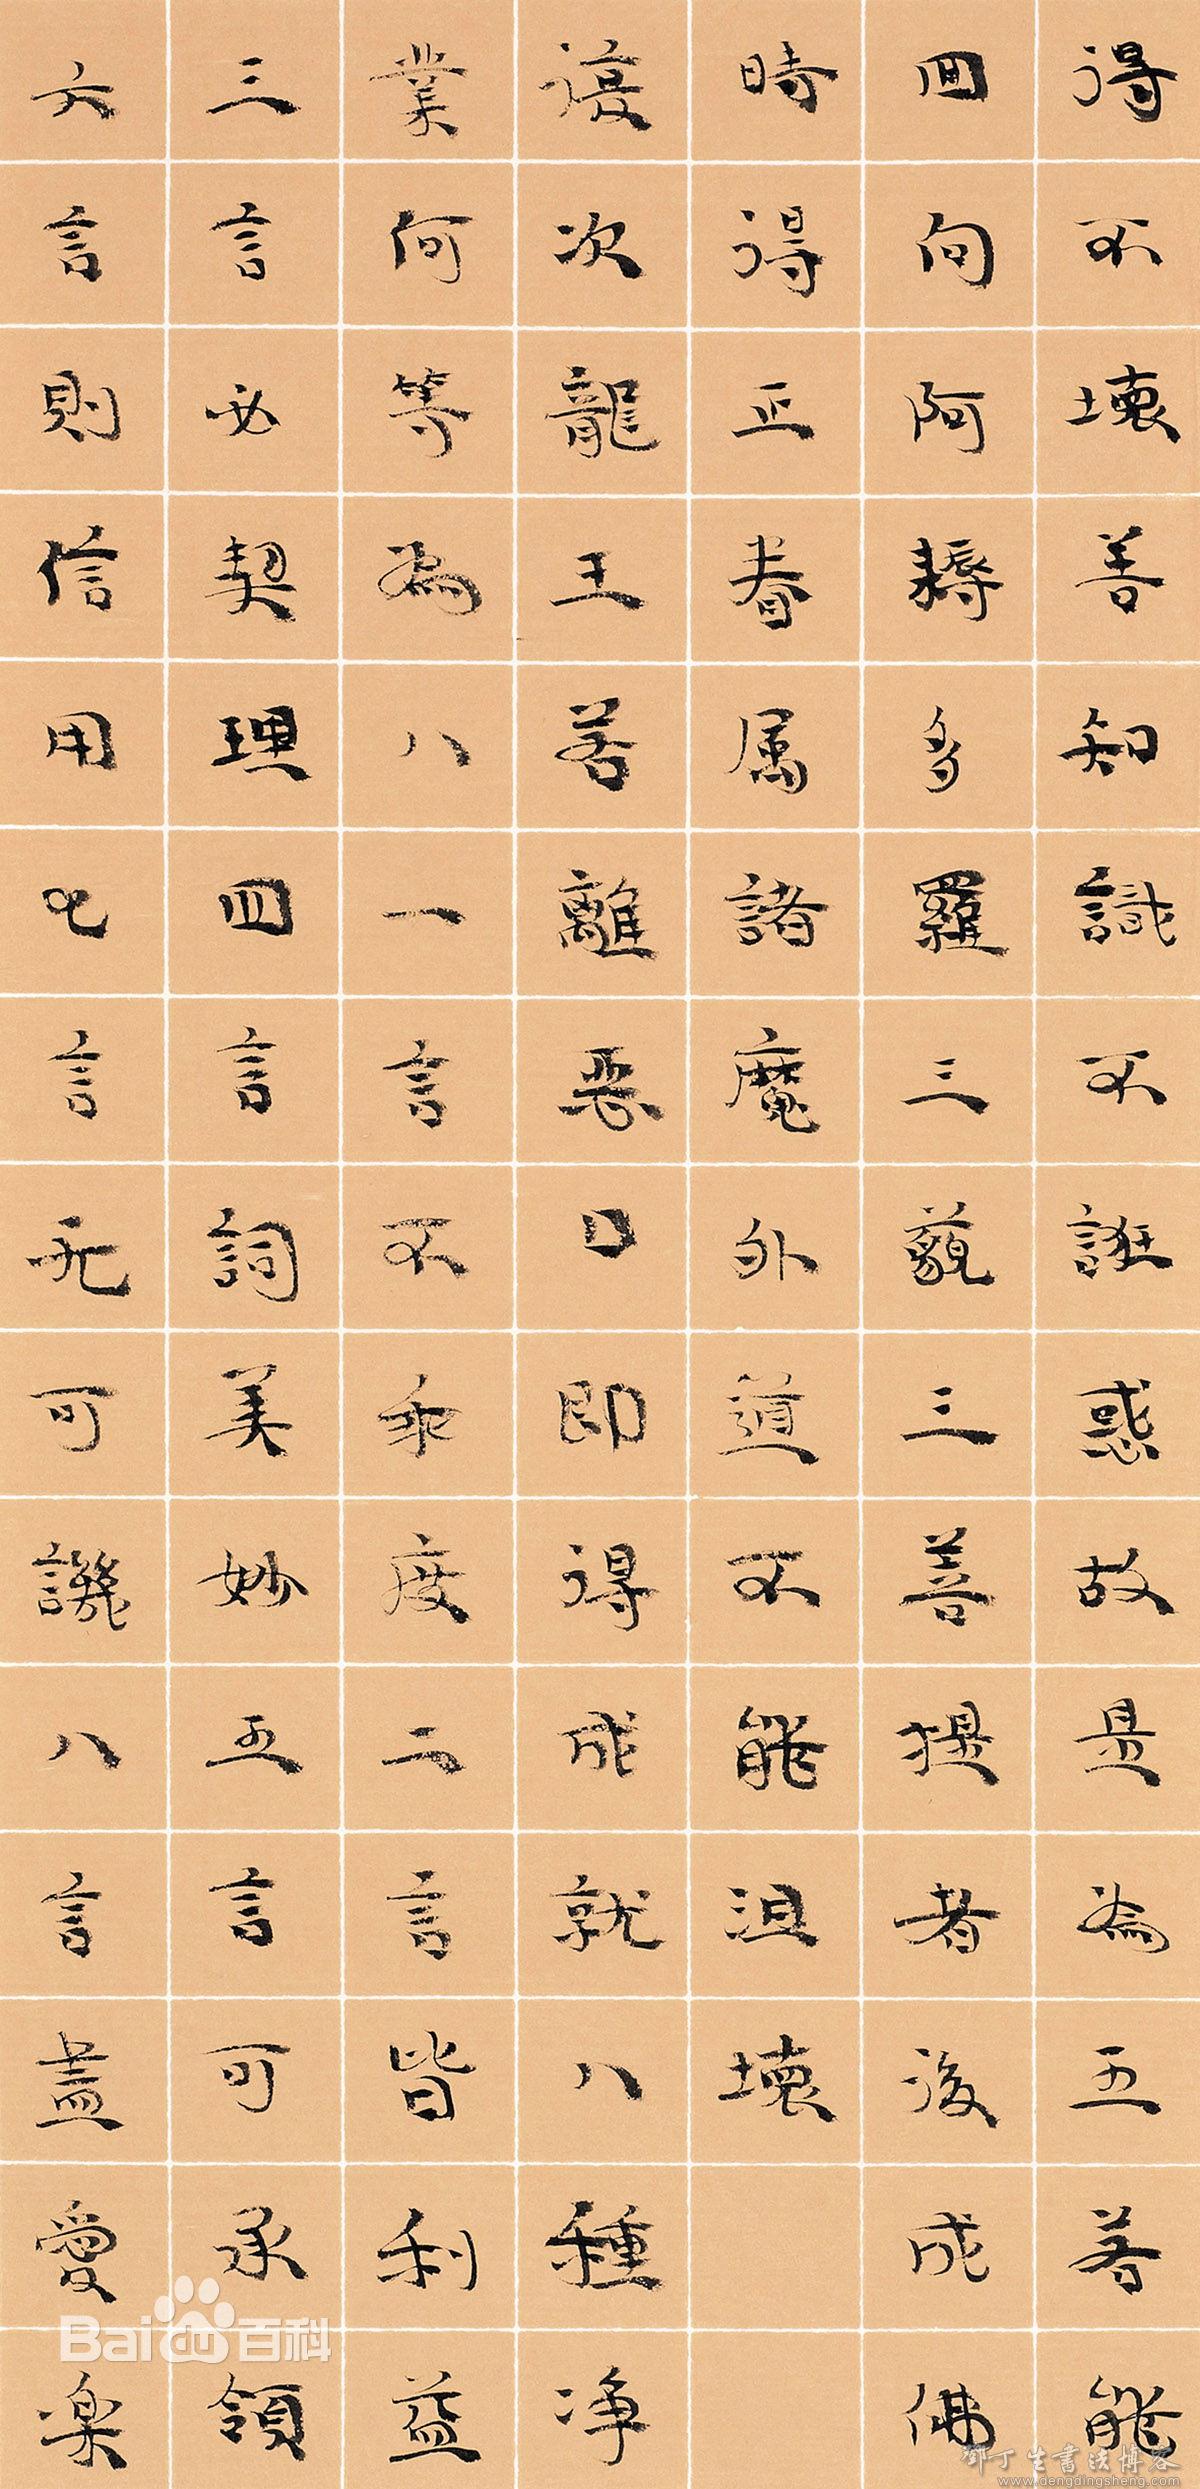 得不壞善知識不誑惑故是為五若能
回向阿耨多羅三藐三菩提者後成佛
時得正眷属諸魔外道不能沮壞
復次龍王若離惡口即得成就八種净
業何等為八一言不乖度二言皆利益
三言必契理四言詞美妙五言可承領
六言則信用七言无可譏八言盡愛楽
Bai百科
鄧丁生書法博客
www.dengdingsheng.com